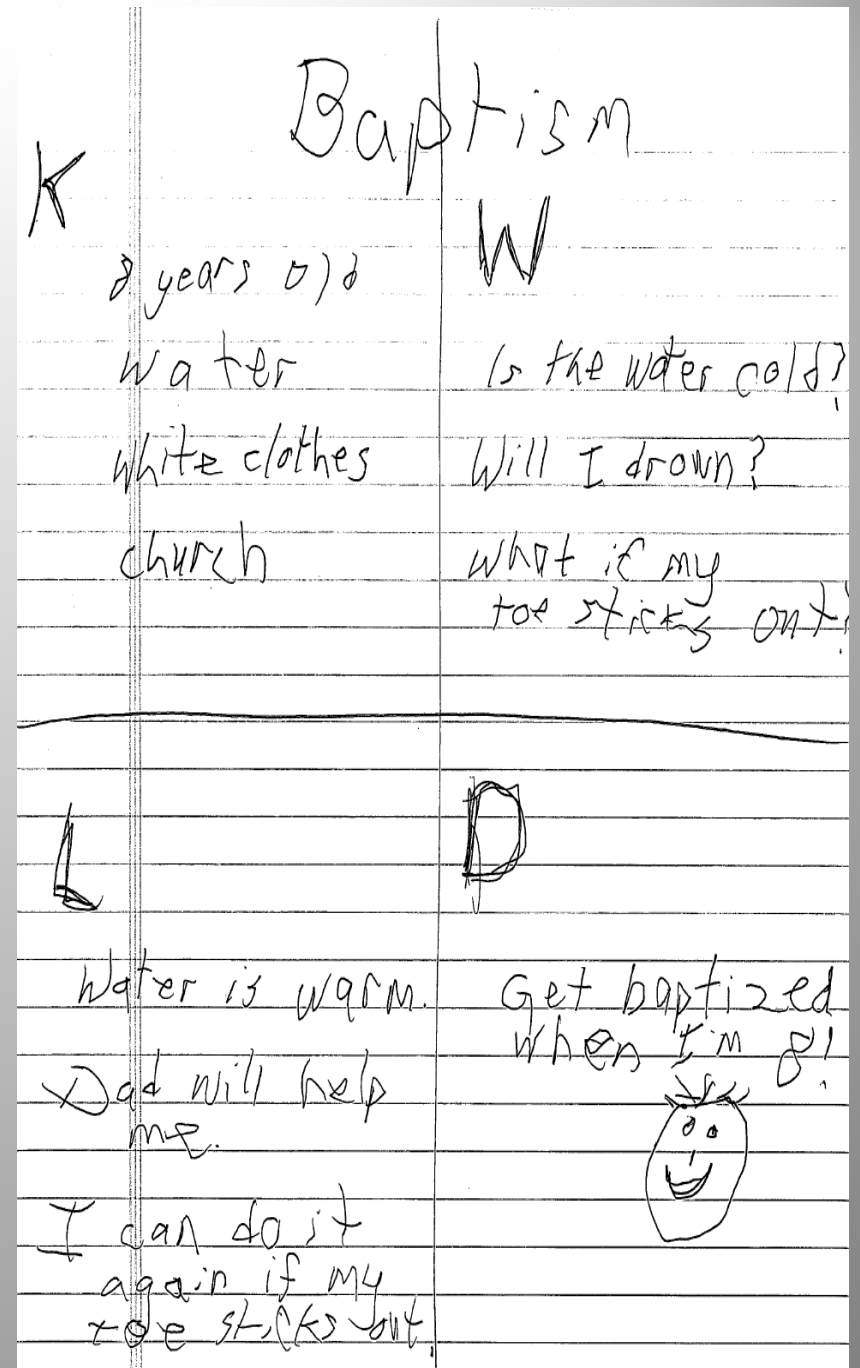 Baptism
K
8 years old
water
white clothes
church
W
Is the water cold?
Will I drown?
What if my
toe sticks out?
L
Water is warm.
Dad will help
me.
I can do it
again if my
toe sticks out.
D
Get baptized
when I'm 8!